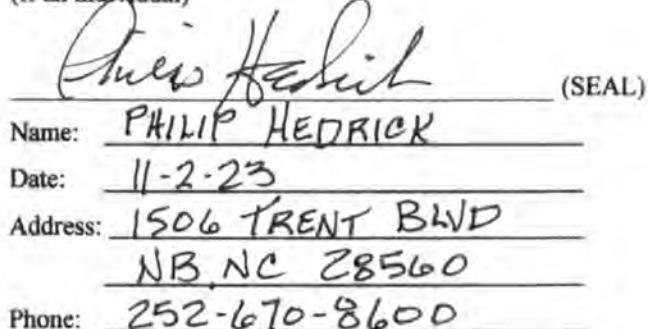 Philip Hedrick (SEAL)
Name: PHILIP HEDRICK
Date: 11-2-23
Address: 1506 TRENT BLVD
NB NC 28560
Phone: 252-670-8600